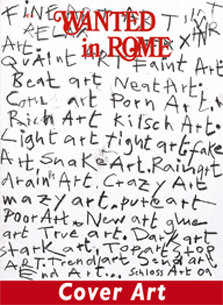 FINE ART
WANTED
in ROME
Art.
Quaint Art Faint Art
Beat art Neat Art.
Corn art Porn Art.
Rich Art Kitsch Art.
Light art tight art. fake
Art Snake Art. Rain art
drain Art. Crazy Art
mazy art. pure art
Poor Art. New art glue
art True art. Dary art
stark art. Top art stop
ART. Trend art Send art
End Art... Schloss Art 09
Cover Art